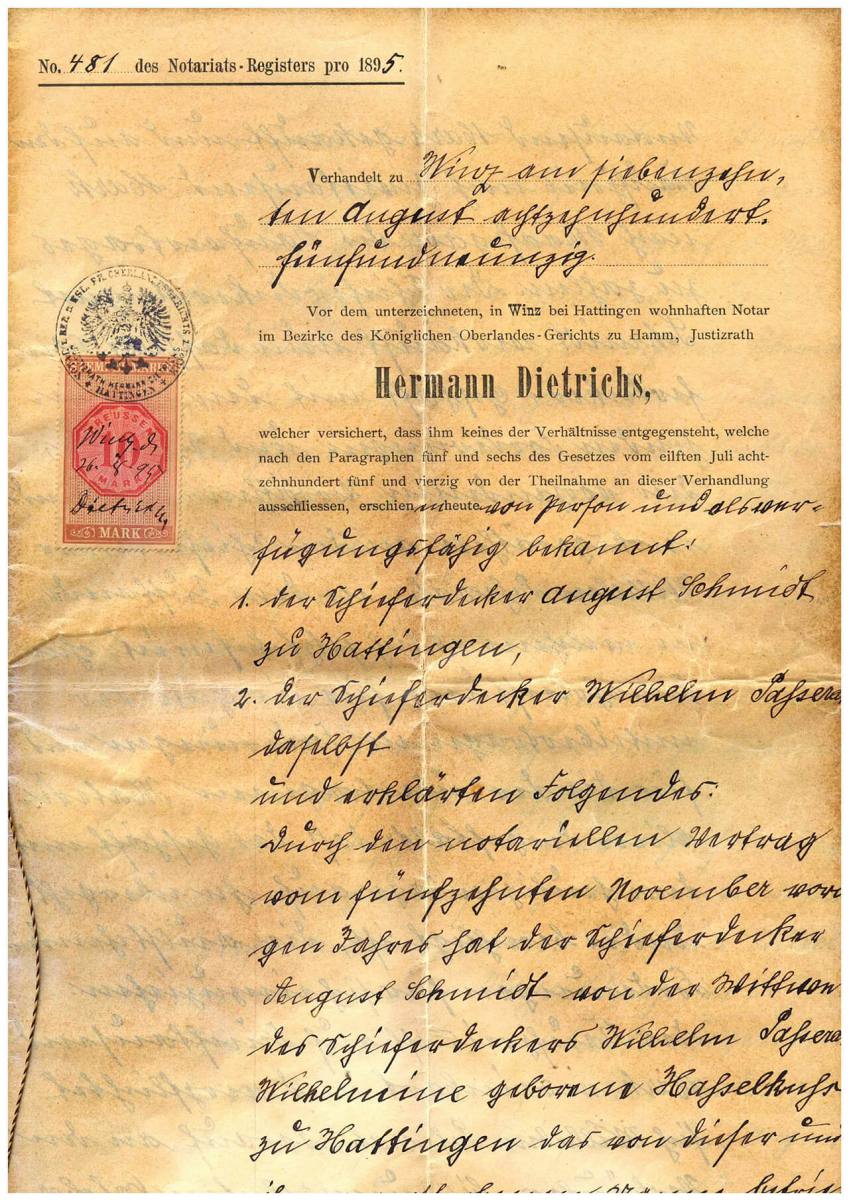 No. 481 des Notariats-Registers pro 1895.
Verhandelt zu Winz am siebenzehn-
ten August achtzehnhundert-
fünfundneunzig.
Vor dem unterzeichneten, in Winz bei Hattingen wohnhaften Notar
im Bezirke des Königlichen Oberlandes-Gerichts zu Hamm, Justizrath
Hermann Dietrichs,
welcher versichert, dass ihm keines der Verhältnisse entgegensteht, welche
nach den Paragraphen fünf und sechs des Gesetzes vom eilften Juli acht-
zehnhundert fünf und vierzig von der Theilnahme an dieser Verhandlung
ausschliessen, erschienen heute von Person und als ver-
fügungsfähig bekannt:
1. der Schieferdecker August Schmidt
zu Hattingen,
2. der Schieferdecker Wilhelm
daselbst
und erklärten Folgendes:
Durch den notariellen Vertrag
vom fünfzehnten November vori
gen Jahres hat der Schieferdecker
August Schmidt von der Wittwe
des Schieferdeckers Wilhelm
Wilhelmine geborene Hasselkuhs
zu Hattingen das von dieser und
HATTINGEN
PREUSSEN
10
MARK
Winz d.
26. 8. 95
Dietrichs
MARK